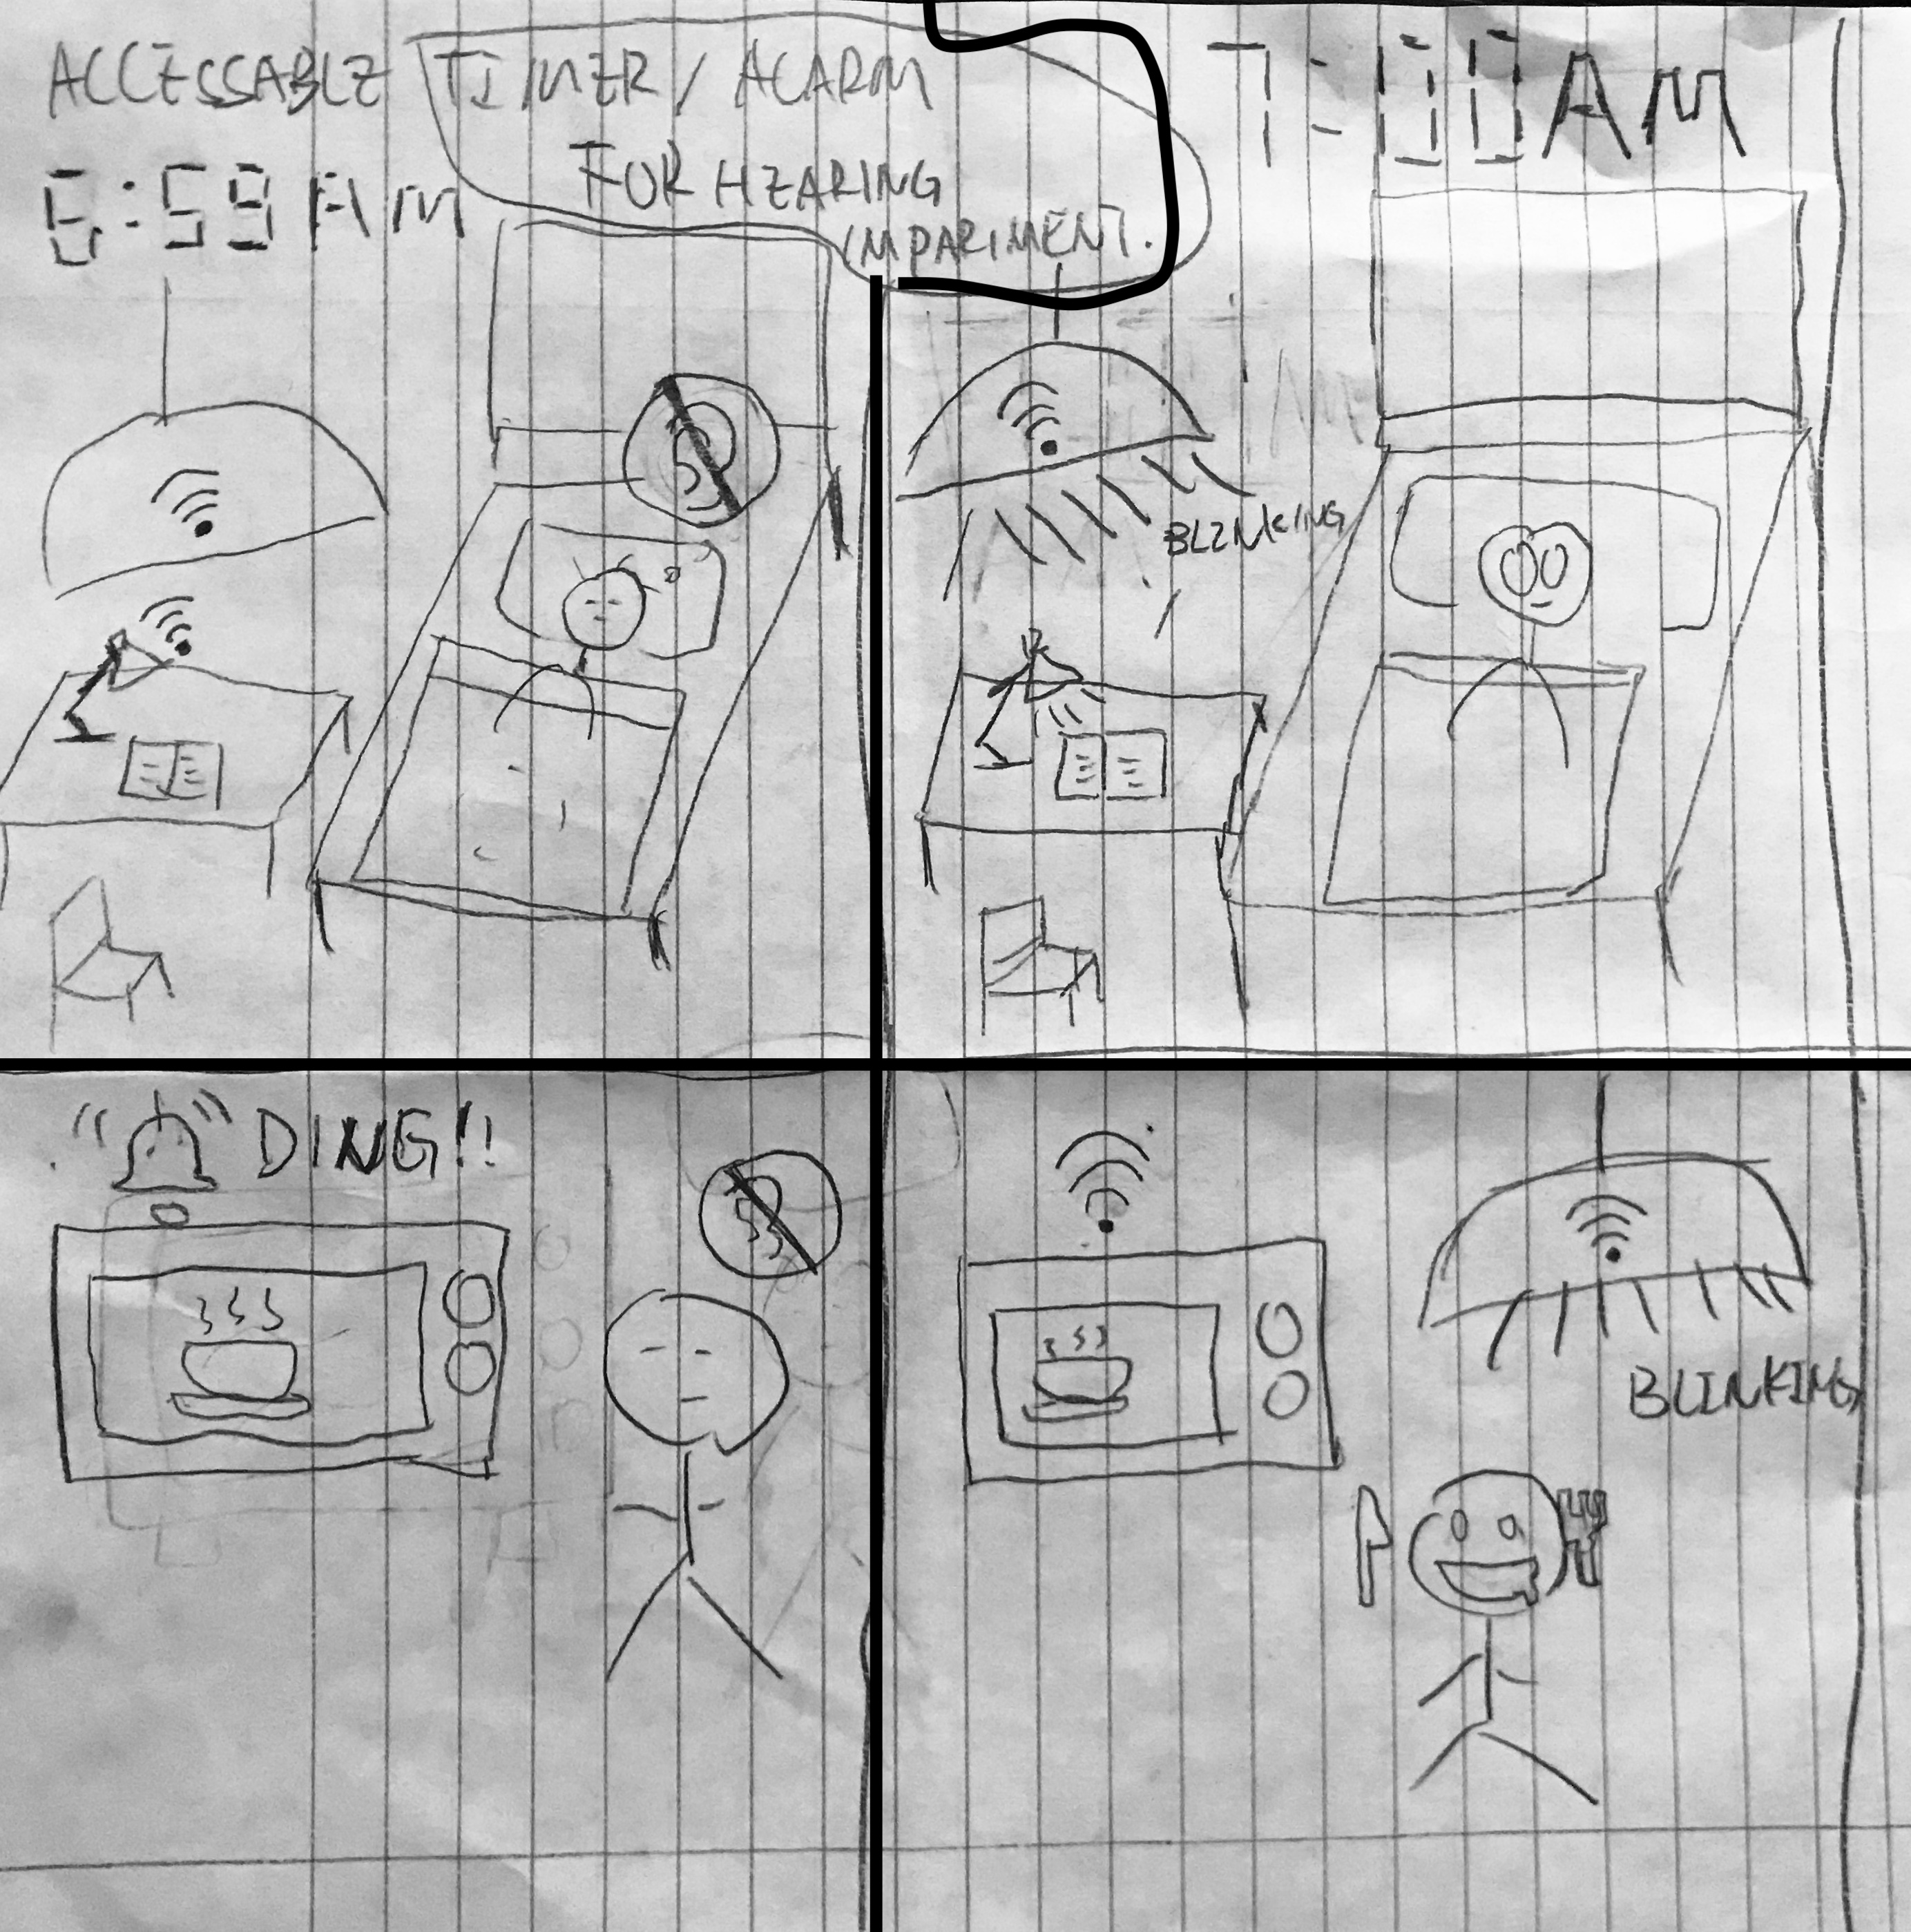 ACCESSABLE TIMER / ALARM
FOR HEARING
IMPARIMENT.
6:59 AM
7:00 AM
BLINKING
DING!!
BLINKING